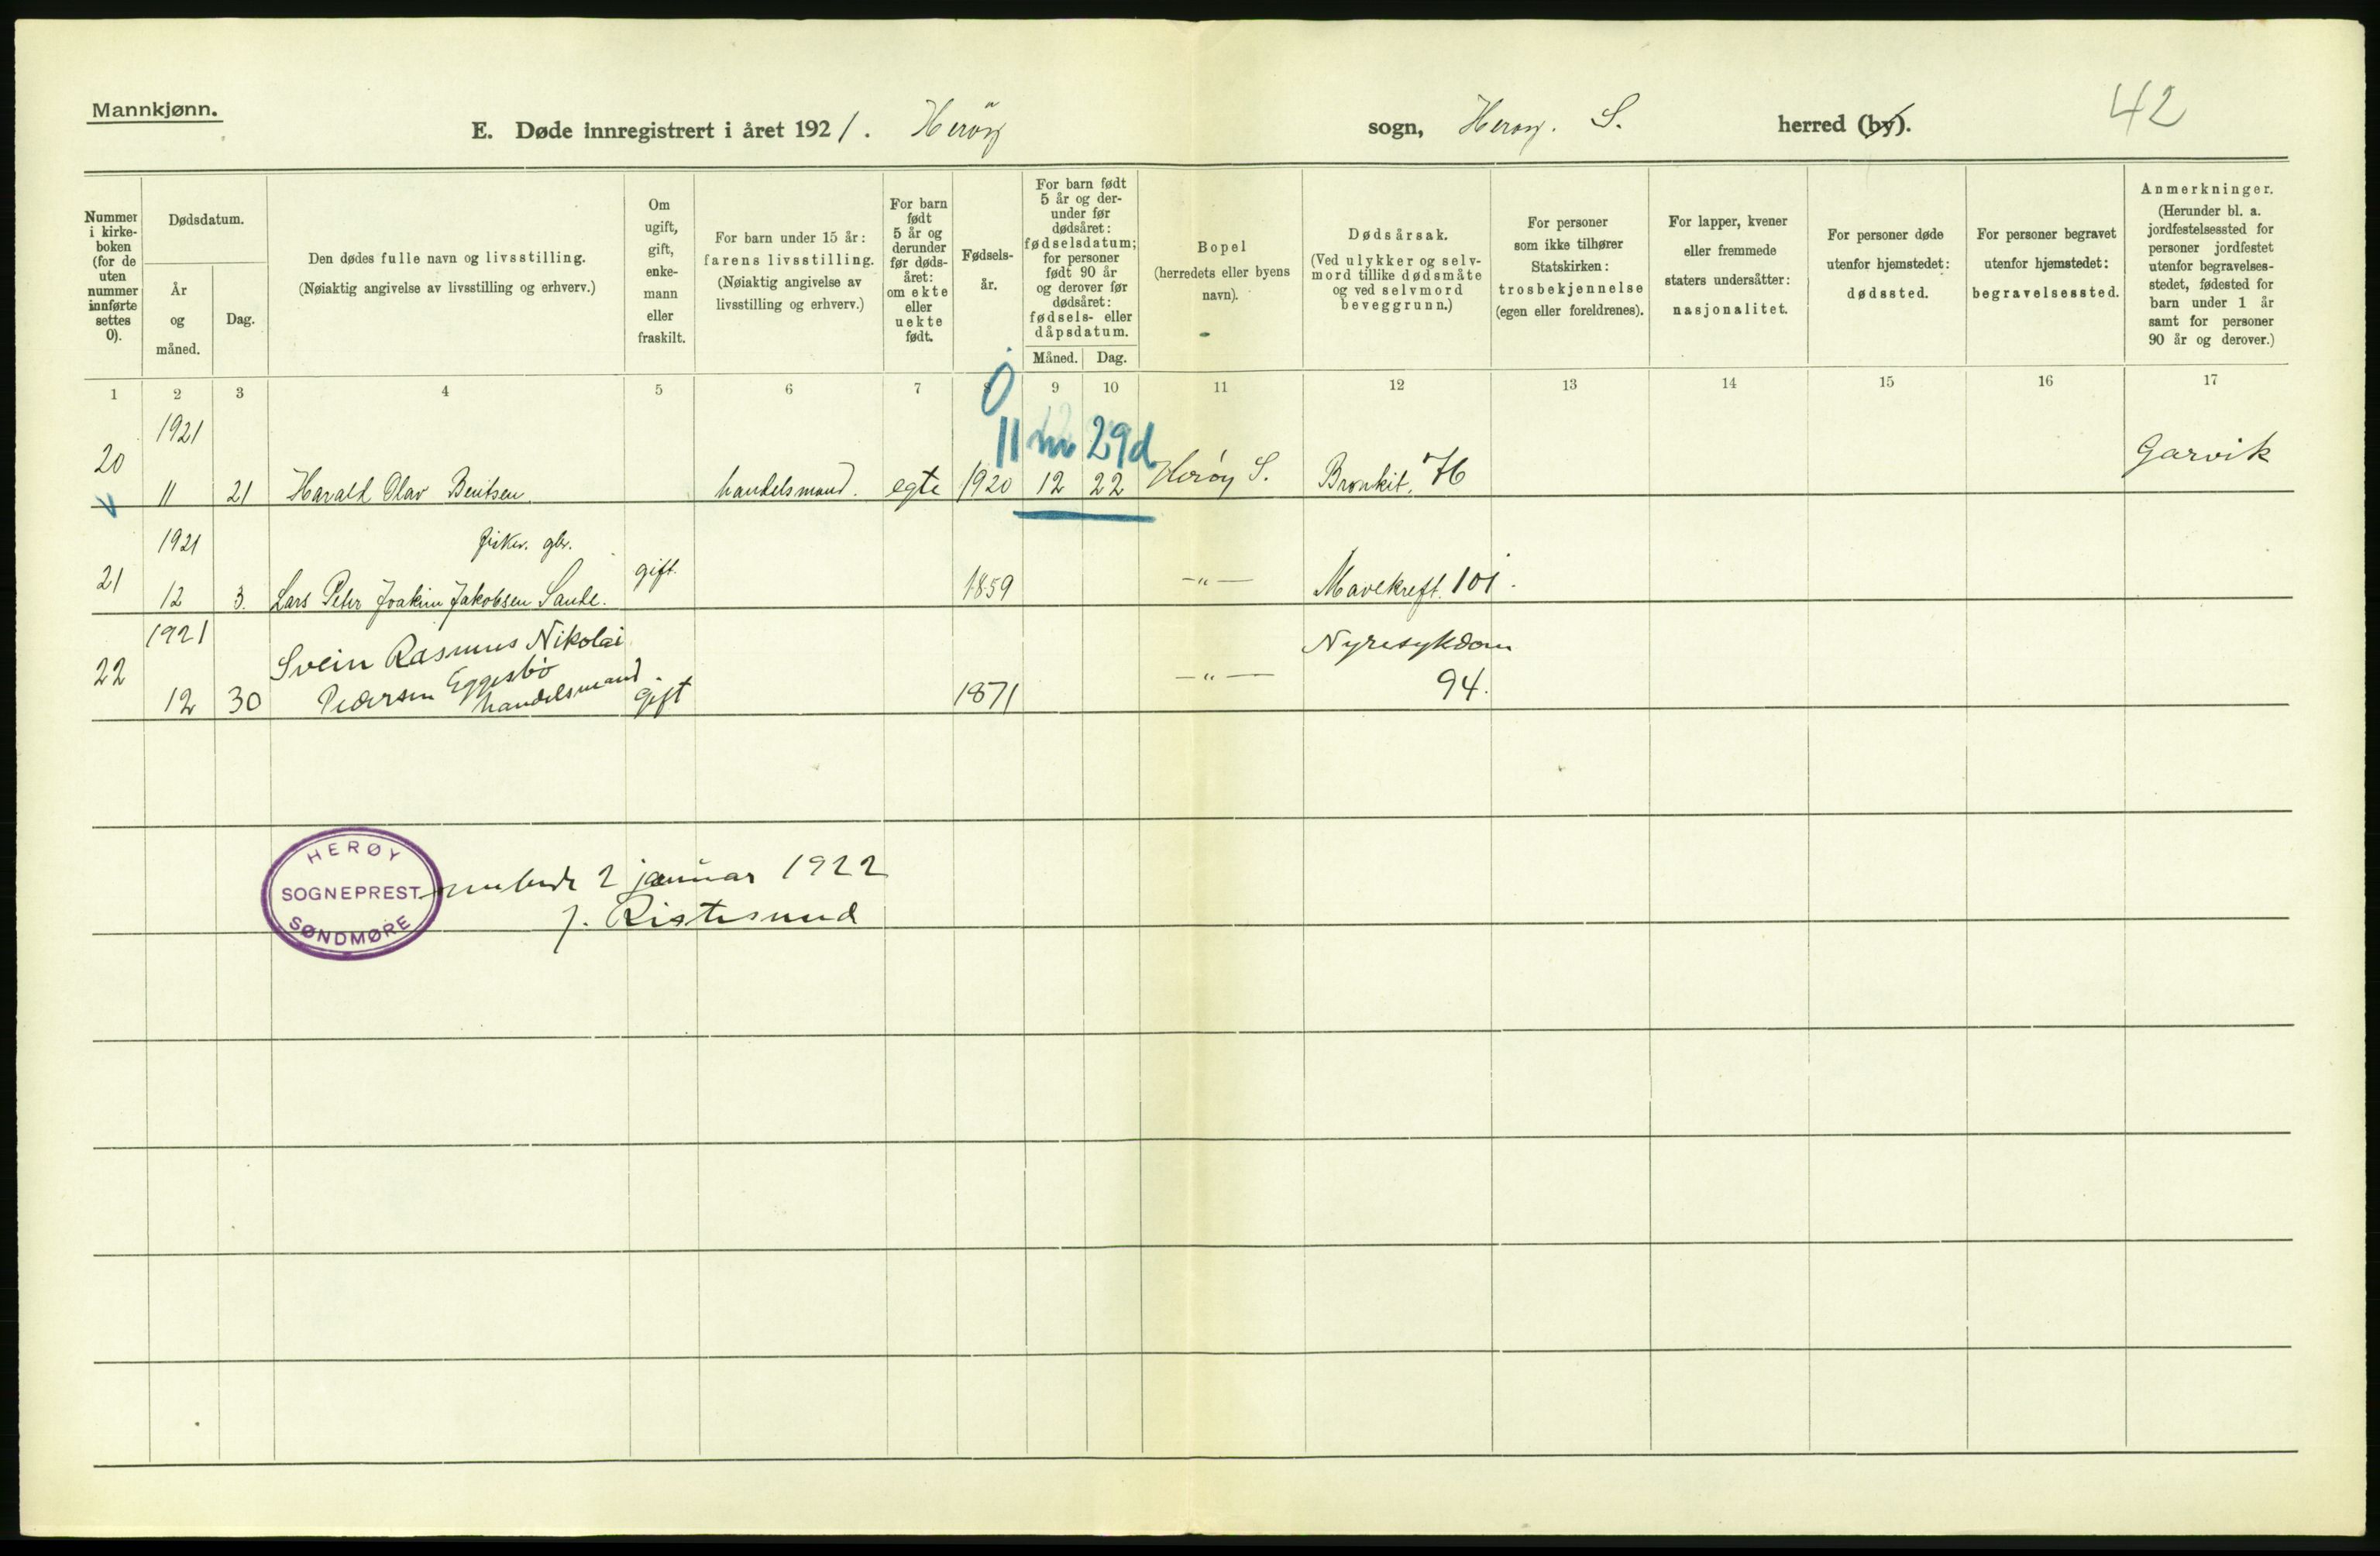 Mannkjønn.
E. Døde innregistrert i året 1921. Herøy sogn, Herøy. S. herred (by).
42
Nummer i kirke-boken (for de uten nummer innførte settes 0).
Dødsdatum.
År og måned.
Dag.
Den dødes fulle navn og livsstilling.
(Nøiaktig angivelse av livsstilling og erhverv.)
Om ugift, gift, enke-mann eller fraskilt.
For barn under 15 år:
farens livsstilling.
(Nøiaktig angivelse av
livsstilling og erhverv.)
For barn født 5 år og derunder før døds-året: om ekte eller uekte født.
Fødsels-år.
For barn født
5 år og der-
under før
dødsåret:
fødselsdatum;
for personer
født 90 år
og derover før
dødsåret:
fødsels- eller
dåpsdatum.
Måned. Dag.
Bopel
(herredets eller byens
navn).
Dødsårsak.
(Ved ulykker og selv-
mord tillike dødsmåte
og ved selvmord
beveggrunn.)
For personer
som ikke tilhører
Statskirken:
trosbekjennelse
(egen eller foreldrenes).
For lapper, kvener
eller fremmede
staters undersåtter:
nasjonalitet.
For personer døde
utenfor hjemstedet:
dødssted.
For personer begravet
utenfor hjemstedet:
begravelsessted.
Anmerkninger.
(Herunder bl. a.
jordfestelsessted for
personer jordfestet
utenfor begravelses-
stedet, fødested for
barn under 1 år
samt for personer
90 år og derover.)
1 2 3 4 5 6 7 8 9 10 11 12 13 14 15 16 17
0
1921 11 m 29 d
20 11 21 Harald Olav Bentsen. handelsmand. egte 1920 12 22 Herøy S. Bronkit. 76 Garvik
1921 fisker. gbr.
21 12 3. Lars Peter Joakim Jakobsen Sande. gift. 1859 —"— Mavekreft. 101.
1921 Svein Rasmus Nikolai Nyresykdom
22 12 30 Pedersen Eggesbø handelsmand. gift 1871 —"— 94.
HERØY
SOGNEPREST
SØNDMØRE
2 januar 1922
J. Ristesund